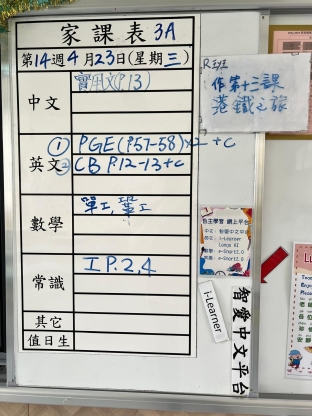 家課表 3A
第14週4月23日(星期三)
中文
實用文(P.13)
英文
① PGE(P.57-58)x2 +c
② CB P.12-13+c
數學
單工,
常識
工 P.2,4
其它
值日生
R班
作第十三課
港鐵之旅
自主學習 網上平台
i-Learner
智愛中文平台